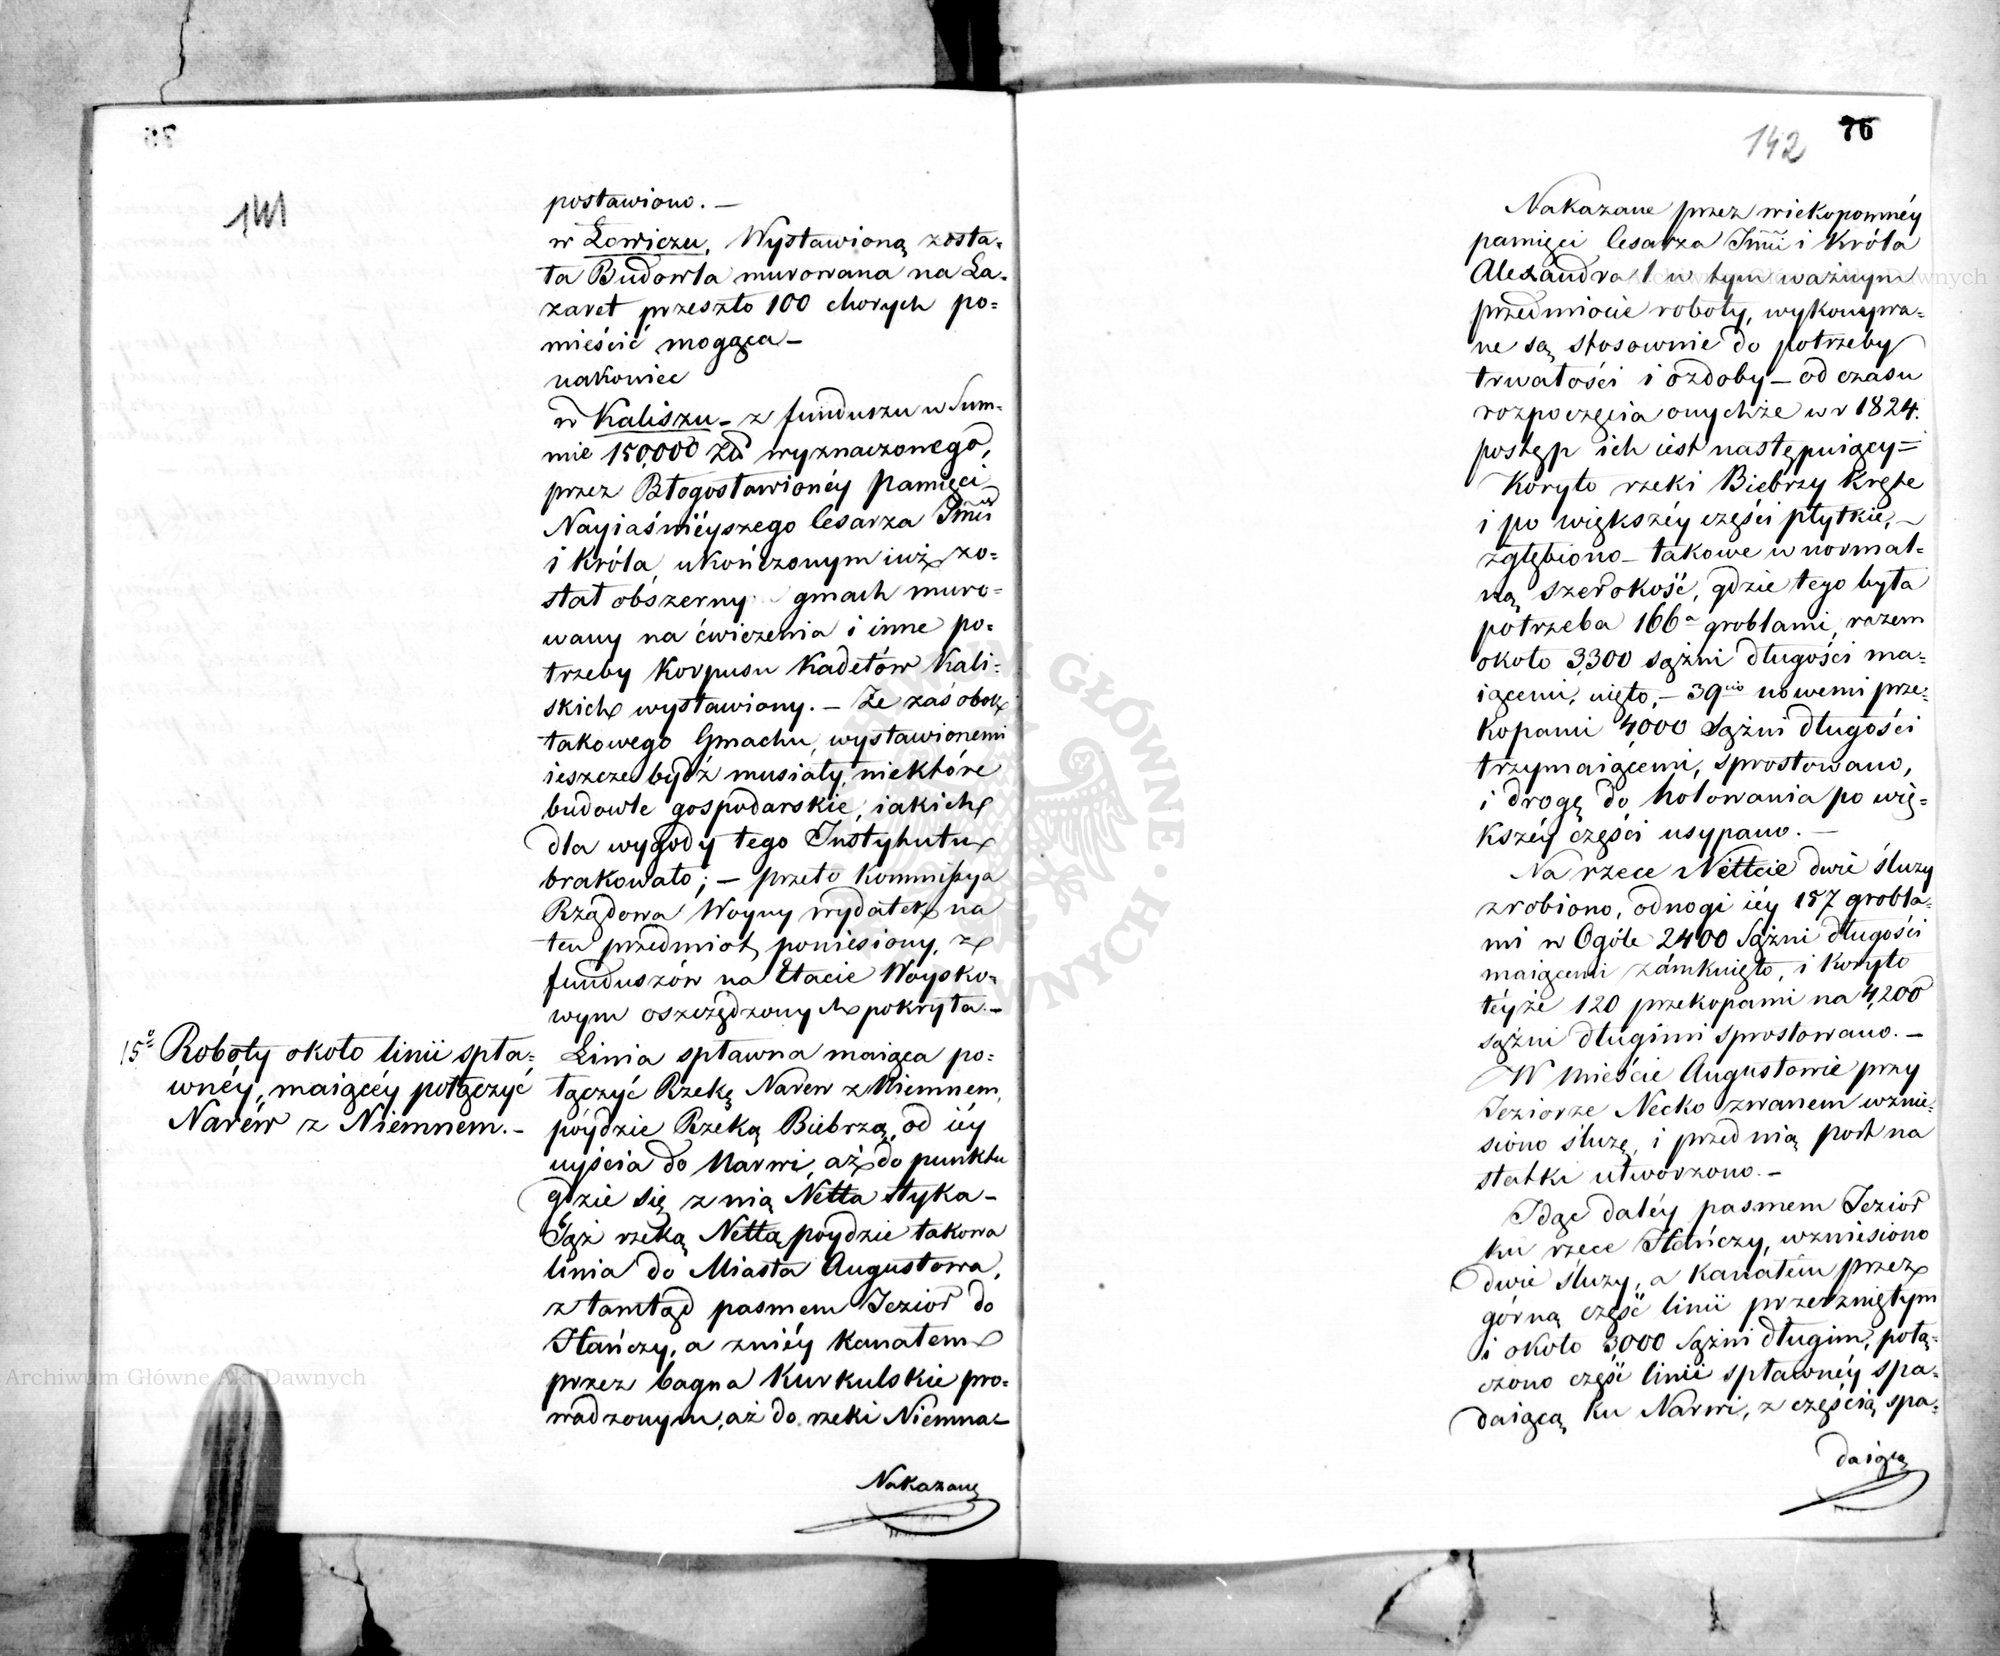 141
postawiono. —
w Łowiczu, Wystawioną zosta=
ła Budowla murowana na La=
zaret przeszło 100 chorych po=
mieścić mogąca —
nakoniec
w Kaliszu — z funduszu w Sum=
mie 150,000 Zł wyznaczonego,
przez Błogosławionéy Pamięci
Nayiaśniéyszego Cesarza
i Króla, ukończonym iuż zo=
stał obszerny gmach muro=
wany na ćwiczenia i inne po=
trzeby Korpusu Kadetów Kali=
skich wystawiony. — Że zaś obok
takowego Gmachu, wystawionemi
ieszcze bydź musiały, niektóre
budowle gospodarskie, iakich
dla wygody tego Instytutu
brakowało; — przeto Kommissya
Rządowa Woyny wydatek na
ten przedmiot, poniesiony, z
funduszów na Etacie Woysko=
wym oszczędzonych pokryła. —
15e Roboty około linii spła=
wnéy, maiącéy połączyć
Narew z Niemnem. —
Linia spławna maiąca po=
łączyć Rzekę Narew z Niemnem,
póydzie Rzeką Biebrzą, od iéy
uyścia do Narwi, aż do punktu
gdzie się z nią Netta styka —
Tąż rzeką Nettą póydzie takowa
linia do Miasta Augustowa,
z tamtąd pasmem Jezior do
Hańczy, a z niéy kanałem
przez bagna Kurkulskie pro=
wadzonym, aż do rzeki Niemna —
Nakazane
142 76
Nakazane przez wiekopomnéy
pamięci Cesarza i Króla
Alexandra I w tym ważnym
przedmiocie roboty, wykonywa=
ne są stosownie do potrzeby
trwałości i ozdoby — od czasu
rozpoczęcia onychże w r 1824.
postęp ich iest następuiący =
Koryto rzeki Biebrzy kręte
i po większéy części płytkie, —
zgłębiono — takowe w normal=
ną szerokość, gdzie tego była
potrzeba 166a groblami, razem
około 3,300 sążni długości ma=
iącemi, uięto, — 39cio nowemi prze=
kopami 4000 Sążni długości
trzymaiącemi, sprostowano,
i drogę do holowania po wię=
kszéy części usypano. —
Na rzece Nettcie dwie śluzy
zrobiono, odnogi iéy 157 grobla=
mi w Ogóle 2400 Sążni długości
maiącemi zámknięto, i Koryto
téyże 120 przekopami na 4,200
sążni długimi sprostowano. —
W mieście Augustowie przy
Jeziorze Necko zwanem wznie=
siono śluzę, i przed nią port na
statki utworzono. —
Idąc daléy pasmem Jezior
ku rzece Hańczy, wzniesiono
dwie śluzy, a kanałem przez
górną część linii przerzniętym
i około 3,000 Sążni długim, połą=
czono część linii spławnéy spa=
daiącą ku Narwi, z częścią spa=
daiącą
Archiwum Główne Akt Dawnych